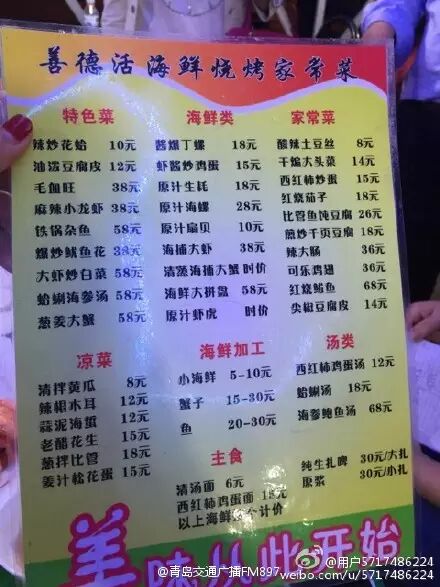 善德活海鲜烧烤家常菜
特色菜
辣炒花蛤 10元
油泼豆腐皮 12元
毛血旺 38元
麻辣小龙虾 38元
铁锅杂鱼 58元
爆炒鱿鱼花 38元
大虾炒白菜 58元
蛤蜊海参汤 58元
葱姜大蟹 58元
海鲜类
酱爆丁螺 18元
虾酱炒鸡蛋 15元
原汁生蚝 18元
原汁海螺 28元
原汁扇贝 10元
海捕大虾 38元
清蒸海捕大蟹 时价
海鲜大拼盘 58元
原汁虾虎 时价
家常菜
酸辣土豆丝 8元
干煸大头菜 14元
西红柿炒蛋 15元
红烧茄子 18元
比管鱼炖豆腐 26元
煎炒千页豆腐 18元
辣大肠 36元
可乐鸡翅 36元
红烧鲅鱼 68元
尖椒豆腐皮 14元
凉菜
清拌黄瓜 8元
辣根木耳 12元
蒜泥海蜇 12元
老醋花生 15元
葱拌比管 18元
姜汁松花蛋 15元
海鲜加工
小海鲜 5-10元
蟹子 15-30元
鱼 20-30元
汤类
西红柿鸡蛋汤 12元
蛤蜊汤 18元
海参鲍鱼汤 68元
主食
清汤面 6元
西红柿鸡蛋面
以上海鲜 个计价
纯生扎啤 30元/大扎
原浆 30元/小扎
美味从此开始
@青岛交通广播FM897
@用户5717486224
weibo.com/u/5717486224